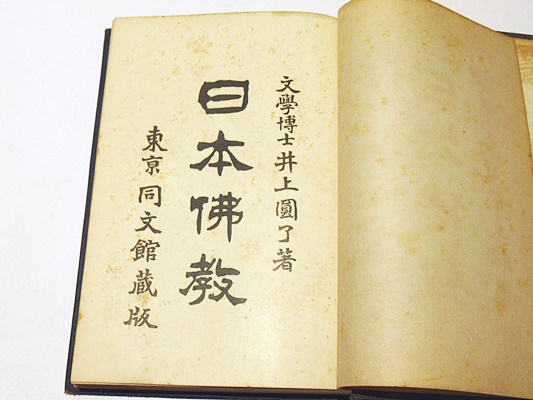 文學博士井上圓了著
日本佛教
東亰同文館蔵版